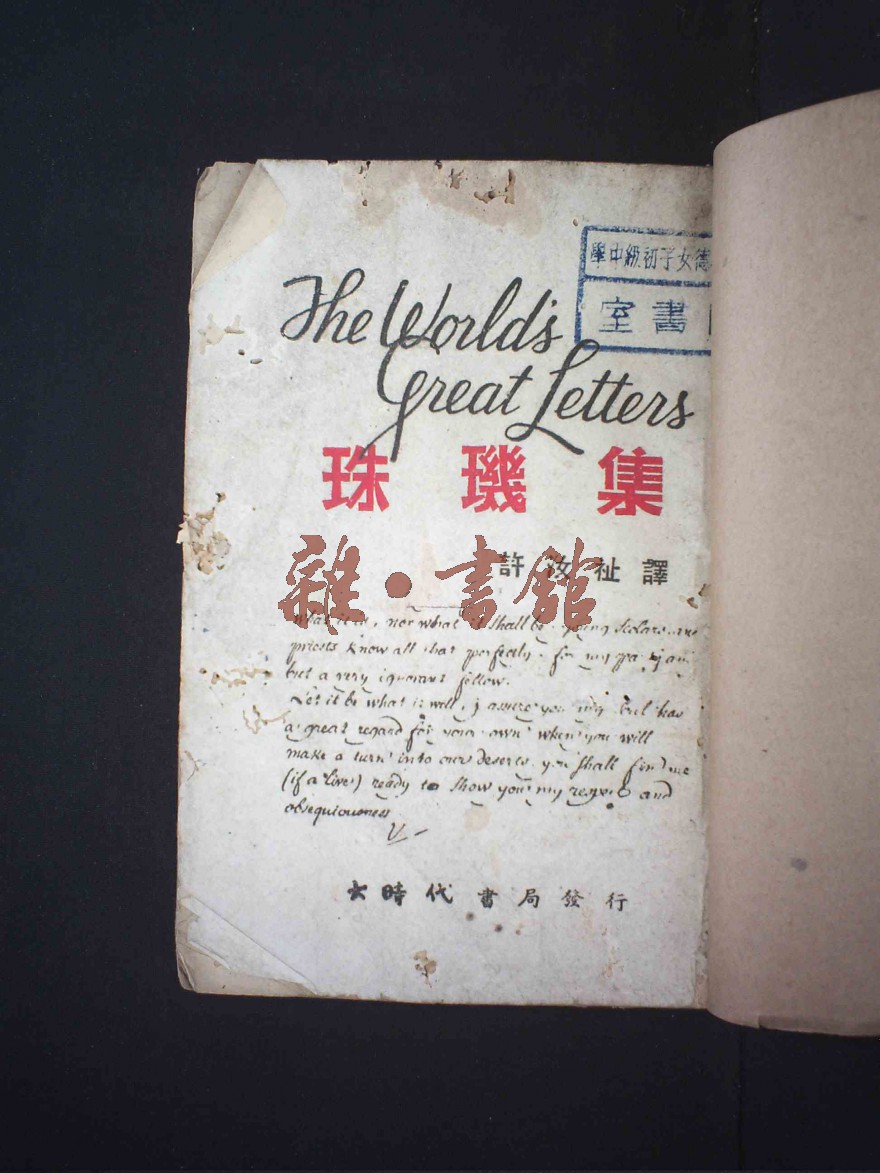 德女子初級中學
書室
The World's
Great Letters
珠璣集
許汝祉譯
雜·書館
what it is, nor what it shall be. young scolars and
priests know all that perfectly. for my part j am
but a very ignorant fellow.
Let it be what it will, j assure you my soul has
a great regard for your own when you will
make a turn into our deserts. you shall find me
(if alive) ready to show you my respect and
obsequiousness
V
大時代書局發行